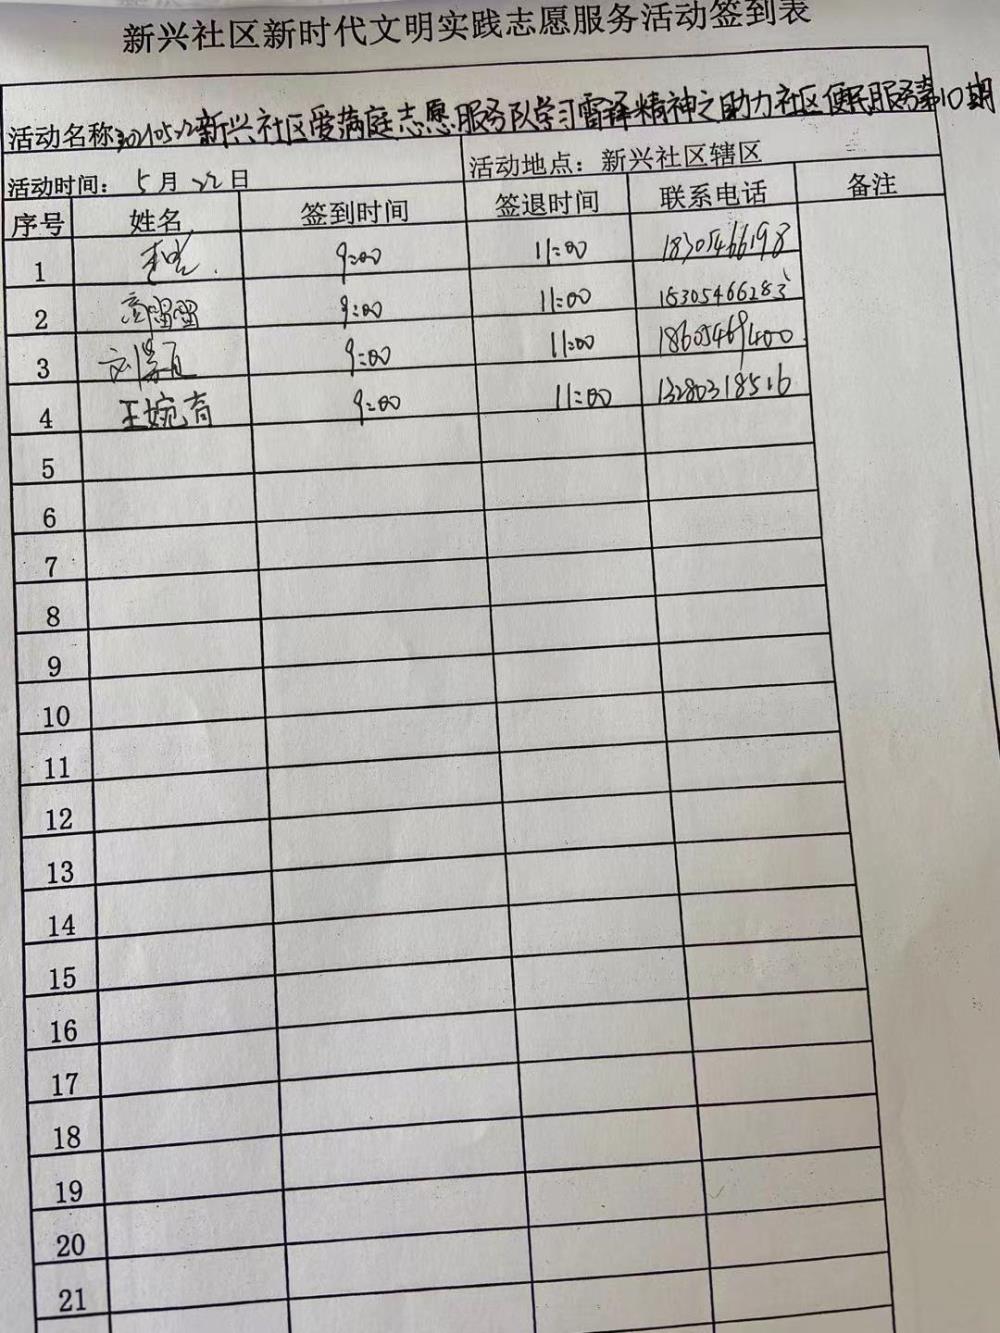 新兴社区新时代文明实践志愿服务活动签到表
活动名称:20210522新兴社区爱满庭志愿服务队学习雷锋精神之助力社区便民服务第10期
活动时间: 5月22日 活动地点: 新兴社区辖区
序号 姓名 签到时间 签退时间 联系电话 备注
1 9:00 11:00 18305466198
2 9:00 11:00 18305466283
3 9:00 11:00 18605469400
4 王婉育 9:00 11:00 13280318516
5
6
7
8
9
10
11
12
13
14
15
16
17
18
19
20
21